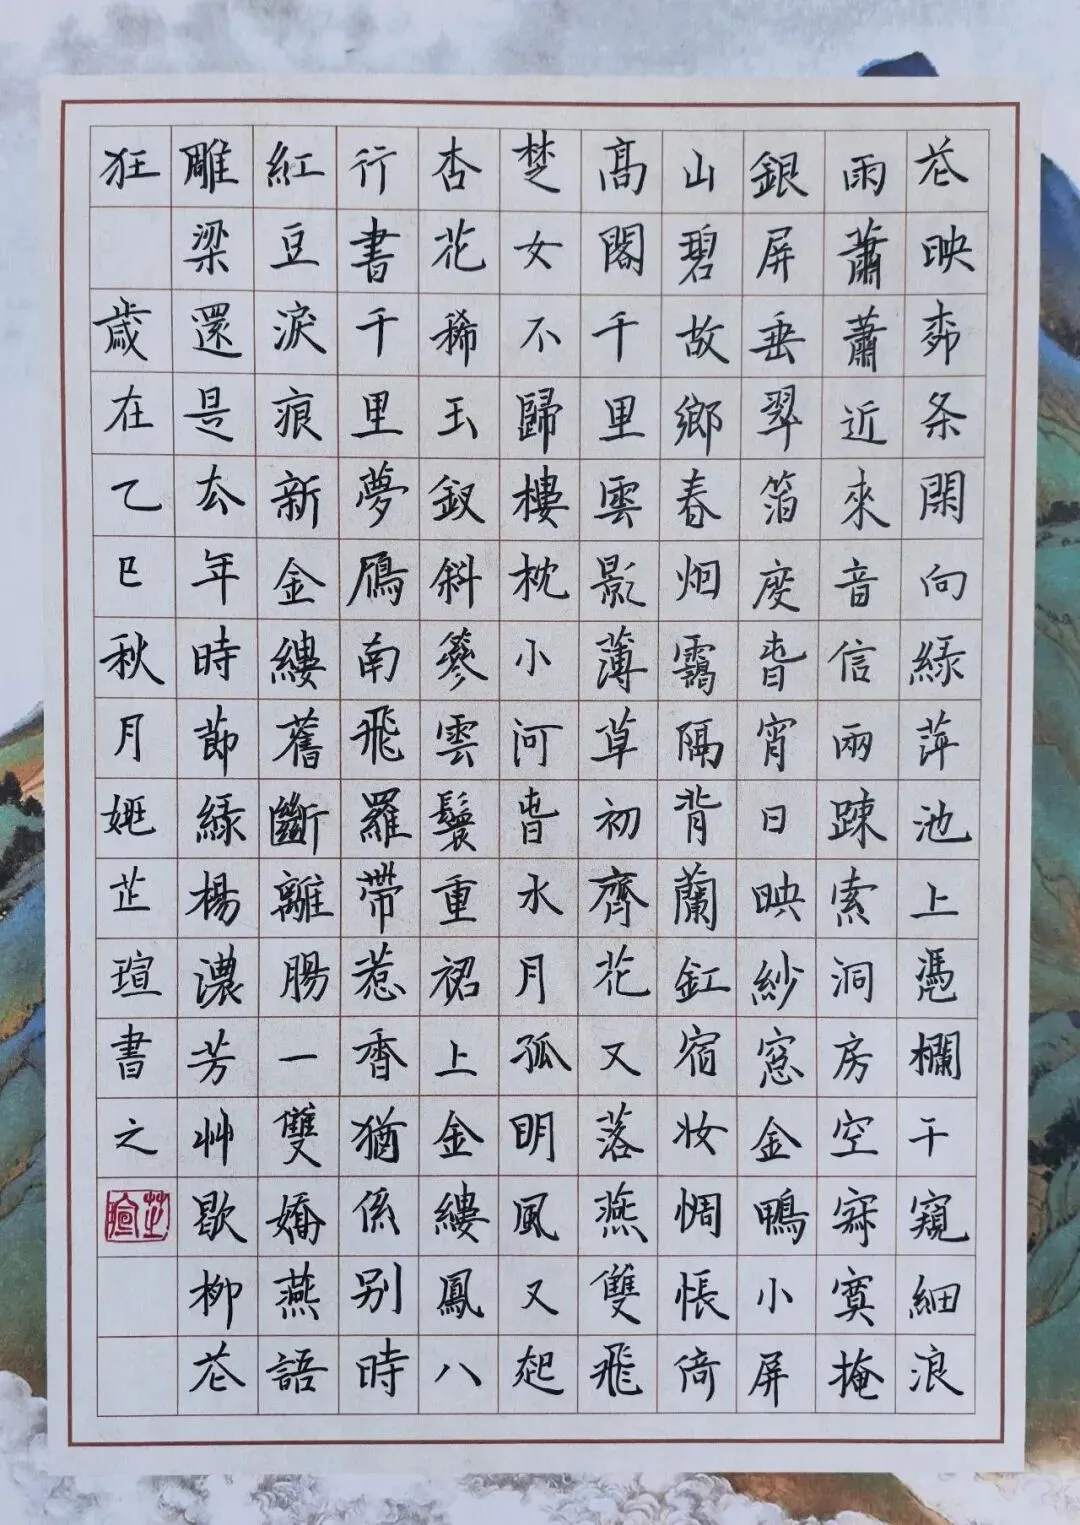 花映桞条閑向緑萍池上憑欄干窺細浪
雨蕭蕭近來音信兩踈索洞房空寂寞掩
銀屏垂翠箔度春宵日映紗窓金鴨小屏
山碧故鄉春烟靄隔背蘭釭宿妝惆悵倚
髙閣千里雲影薄草初齊花又落燕雙飛
楚女不歸樓枕小河春水月孤明風又起
杏花稀玉釵斜篸雲鬟重裙上金縷鳳八
行書千里夢鴈南飛羅帶惹香猶係别時
紅豆淚痕新金縷舊斷離腸一雙嬌燕語
雕梁還是去年時節緑楊濃芳艸歇柳花
狂 歲在乙巳秋月芷瑄書之
芷瑄